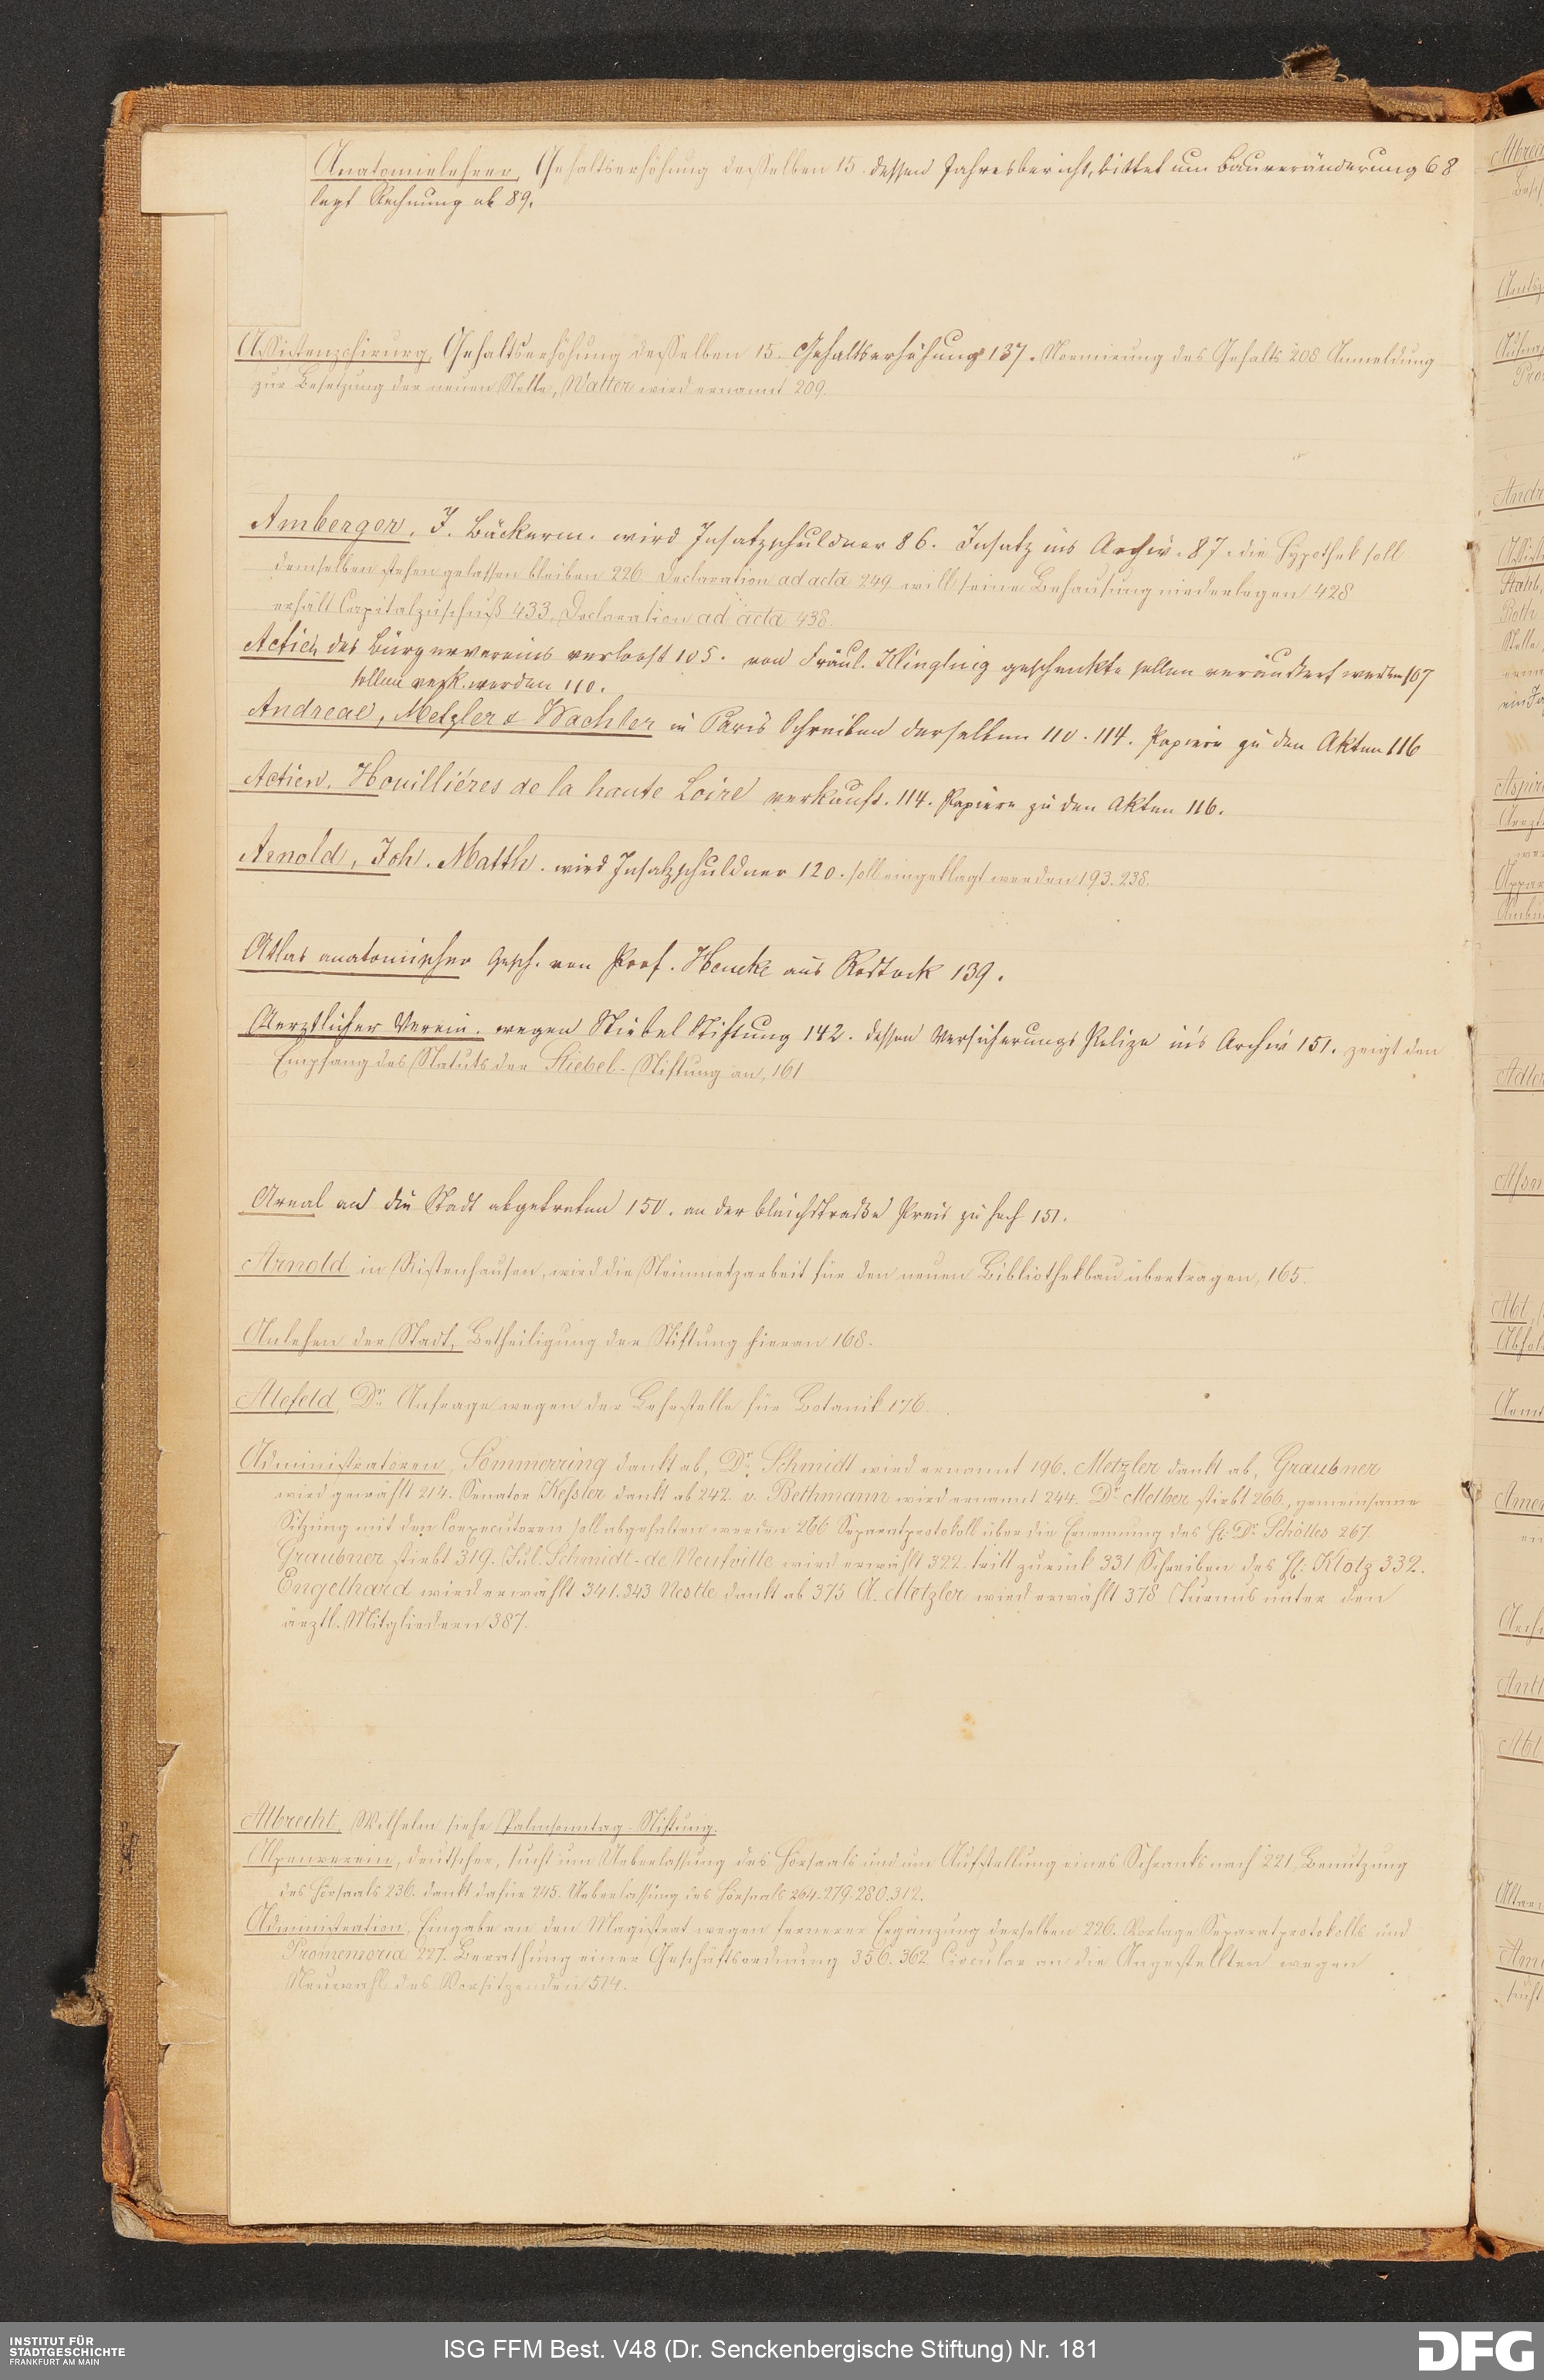 Anatomielehrer, Gehaltserhöhung desselben 15. dessen Jahresbericht, bittet um Bauveränderung 68
legt Rechnung ab 89.
Assistenzchirurg, Gehaltserhöhung desselben 15. Gehaltserhöhung 137. Normierung des Gehalts 208 Anmeldung
zur Besetzung der neuen Stelle, Walter wird ernannt 209.
Amberger, J. Bäckerm. wird Insatzschuldner 86. Insatz ins Archiv. 87. die Hypothek soll
demselben stehen gelassen bleiben 226 Declaration ad acta 249 will seine Behausung niederlegen 428
erhält Capitalzuschuß 433, Declaration ad acta 438.
Actien des Bürgervereins verloost 105. von Fräul. geschenkte sollen veräußert werden 107
sollen verk. werden 110.
Andreae, Metzler & Wachter in Paris Schreiben derselben 110. 114. Papiere zu den Akten 116
Actien. Houilliéres de la haute Loire verkauft. 114. Papiere zu den Akten 116.
Arnold, Joh. Matth. wird Insatzschuldner 120. soll eingeklagt werden 193. 238.
Atlas anatomischer Gesch. von Prof. Hencke aus Rostock 139.
Aerztlicher Verein. wegen Stiebel Stiftung 142. dessen Versicherungs Polize in's Archiv 151. zeigt den
Empfang des Statuts der Stiebel-Stiftung an, 161
Areal an die Stadt abgetreten 150. an der Bleichstraße Preis zu hoch 151.
Arnold in Kistenhausen, wird die Steinmetzarbeit für den neuen Bibliothekbau übertragen, 165.
Anlehen der Stadt, Betheiligung der Stiftung hieran 168.
Alefeld, Dr. Anfrage wegen der Lehrstelle für Botanik 176.
Administratoren, Sömmerring dankt ab, Dr. Schmidt wird ernannt 196. Metzler dankt ab, Graubner
wird gewählt 214. Senator Kessler dankt ab 242. v. Bethmann wird ernannt 244. Dr. Melber stirbt 266, gemeinsame
Sitzung mit den Coexecutoren soll abgehalten werden 266 Separatprotokoll über die Ernennung des H: Dr. Schölles 267.
Graubner stirbt 319. Jul. Schmidt-de Neufville wird erwählt 322. tritt zurück 331 Schreiben des H: Klotz 332.
Engelhard wird erwählt 341. 343 Nestle dankt ab 375 A. Metzler wird erwählt 378 Turnus unter den
ärztl. Mitgliedern 387.
Albrecht, Wilhelm siehe Palmsonntag-Stiftung.
Alpenverein, deutscher, sucht um Ueberlassung des Hörsaals und um Aufstellung eines Schranks nach 221, Benutzung
des Hörsaals 236. dankt dafür 245. Ueberlassung des Hörsaals 264. 279. 280. 312.
Administration, Eingabe an den Magistrat wegen fernerer Ergänzung derselben 226. Vorlage Separatprotokolls und
Promemoria 227. Berathung einer Geschäftsordnung 356. 362 Circular an die Angestellten wegen
Neuwahl des Vorsitzenden 514.
INSTITUT FÜR
STADTGESCHICHTE
FRANKFURT AM MAIN
ISG FFM Best. V48 (Dr. Senckenbergische Stiftung) Nr. 181
DFG